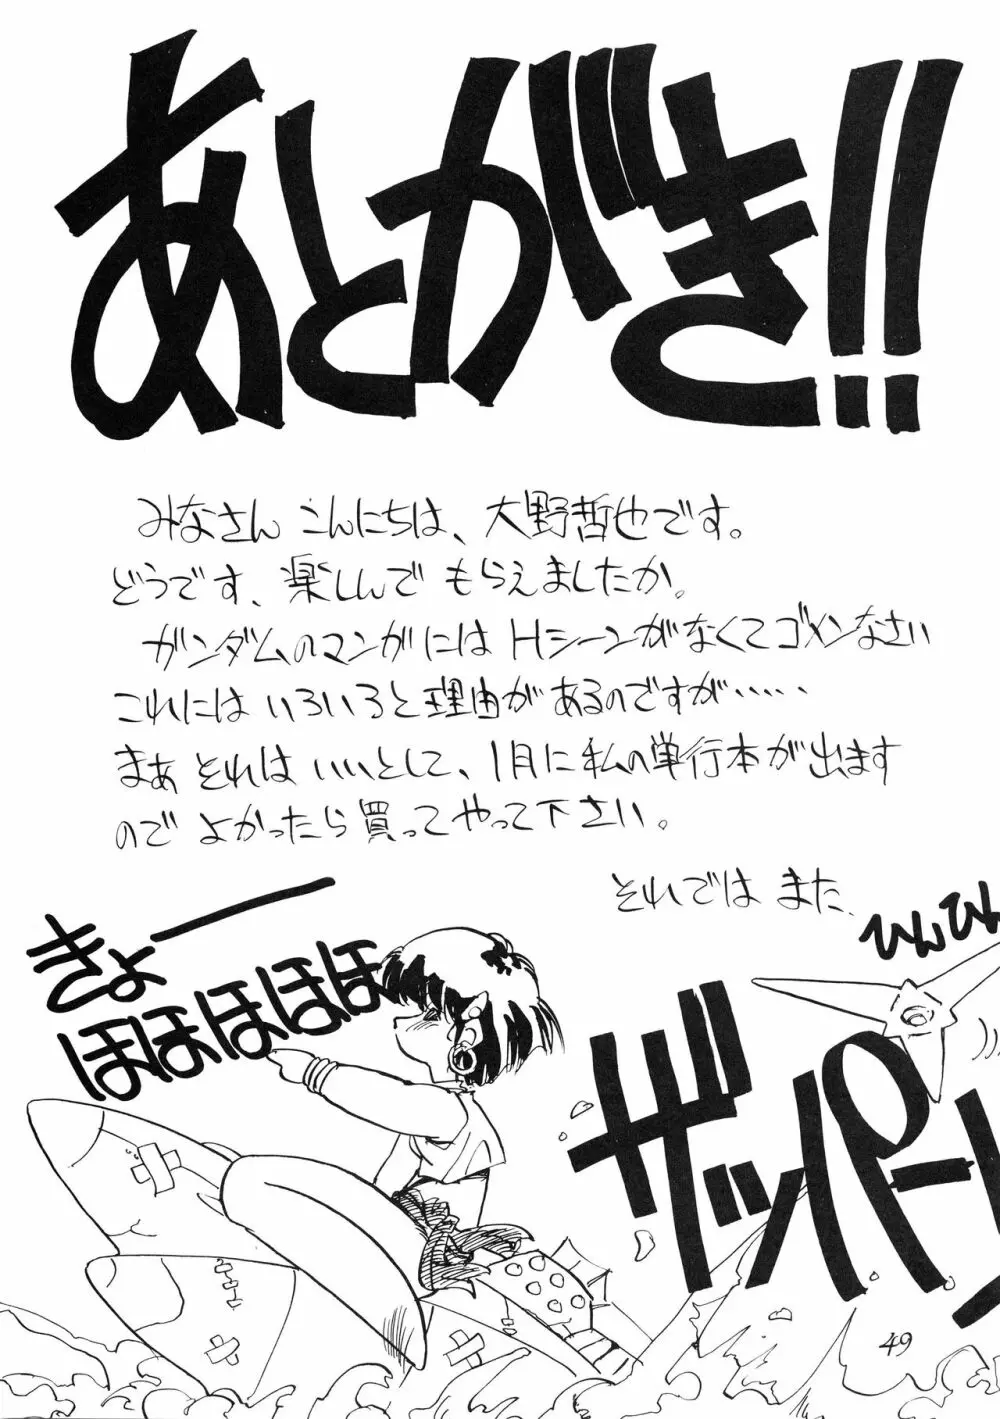 あとがき!!
みなさん こんにちは、大野哲也です。
どうです、楽しんで もらえましたか。
ガンダムのマンガには Hシーンがなくてゴメンなさい
これには いろいろと理由が あるのですが・・・・・
まあ それは いいとして、1月に私の単行本が出ます
ので よかったら買って やって下さい。
それでは また、
ひんひん
きょー
ほほほほほ
ザッパーン
49